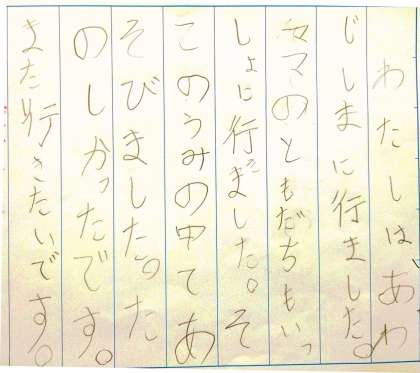 わたしは、あわ
じしまに行ました。
ママのともだちもいっ
しょに行ました。そ
このうみの中てあ
そびました。た
のしかったです。
また行きたいです。